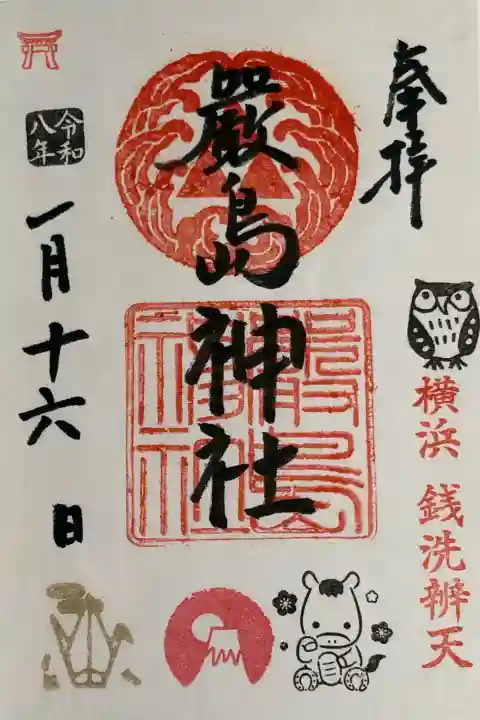 奉拝
横浜 銭洗辨天
嚴島神社
嚴島
神社
令和
八年
一月十六日